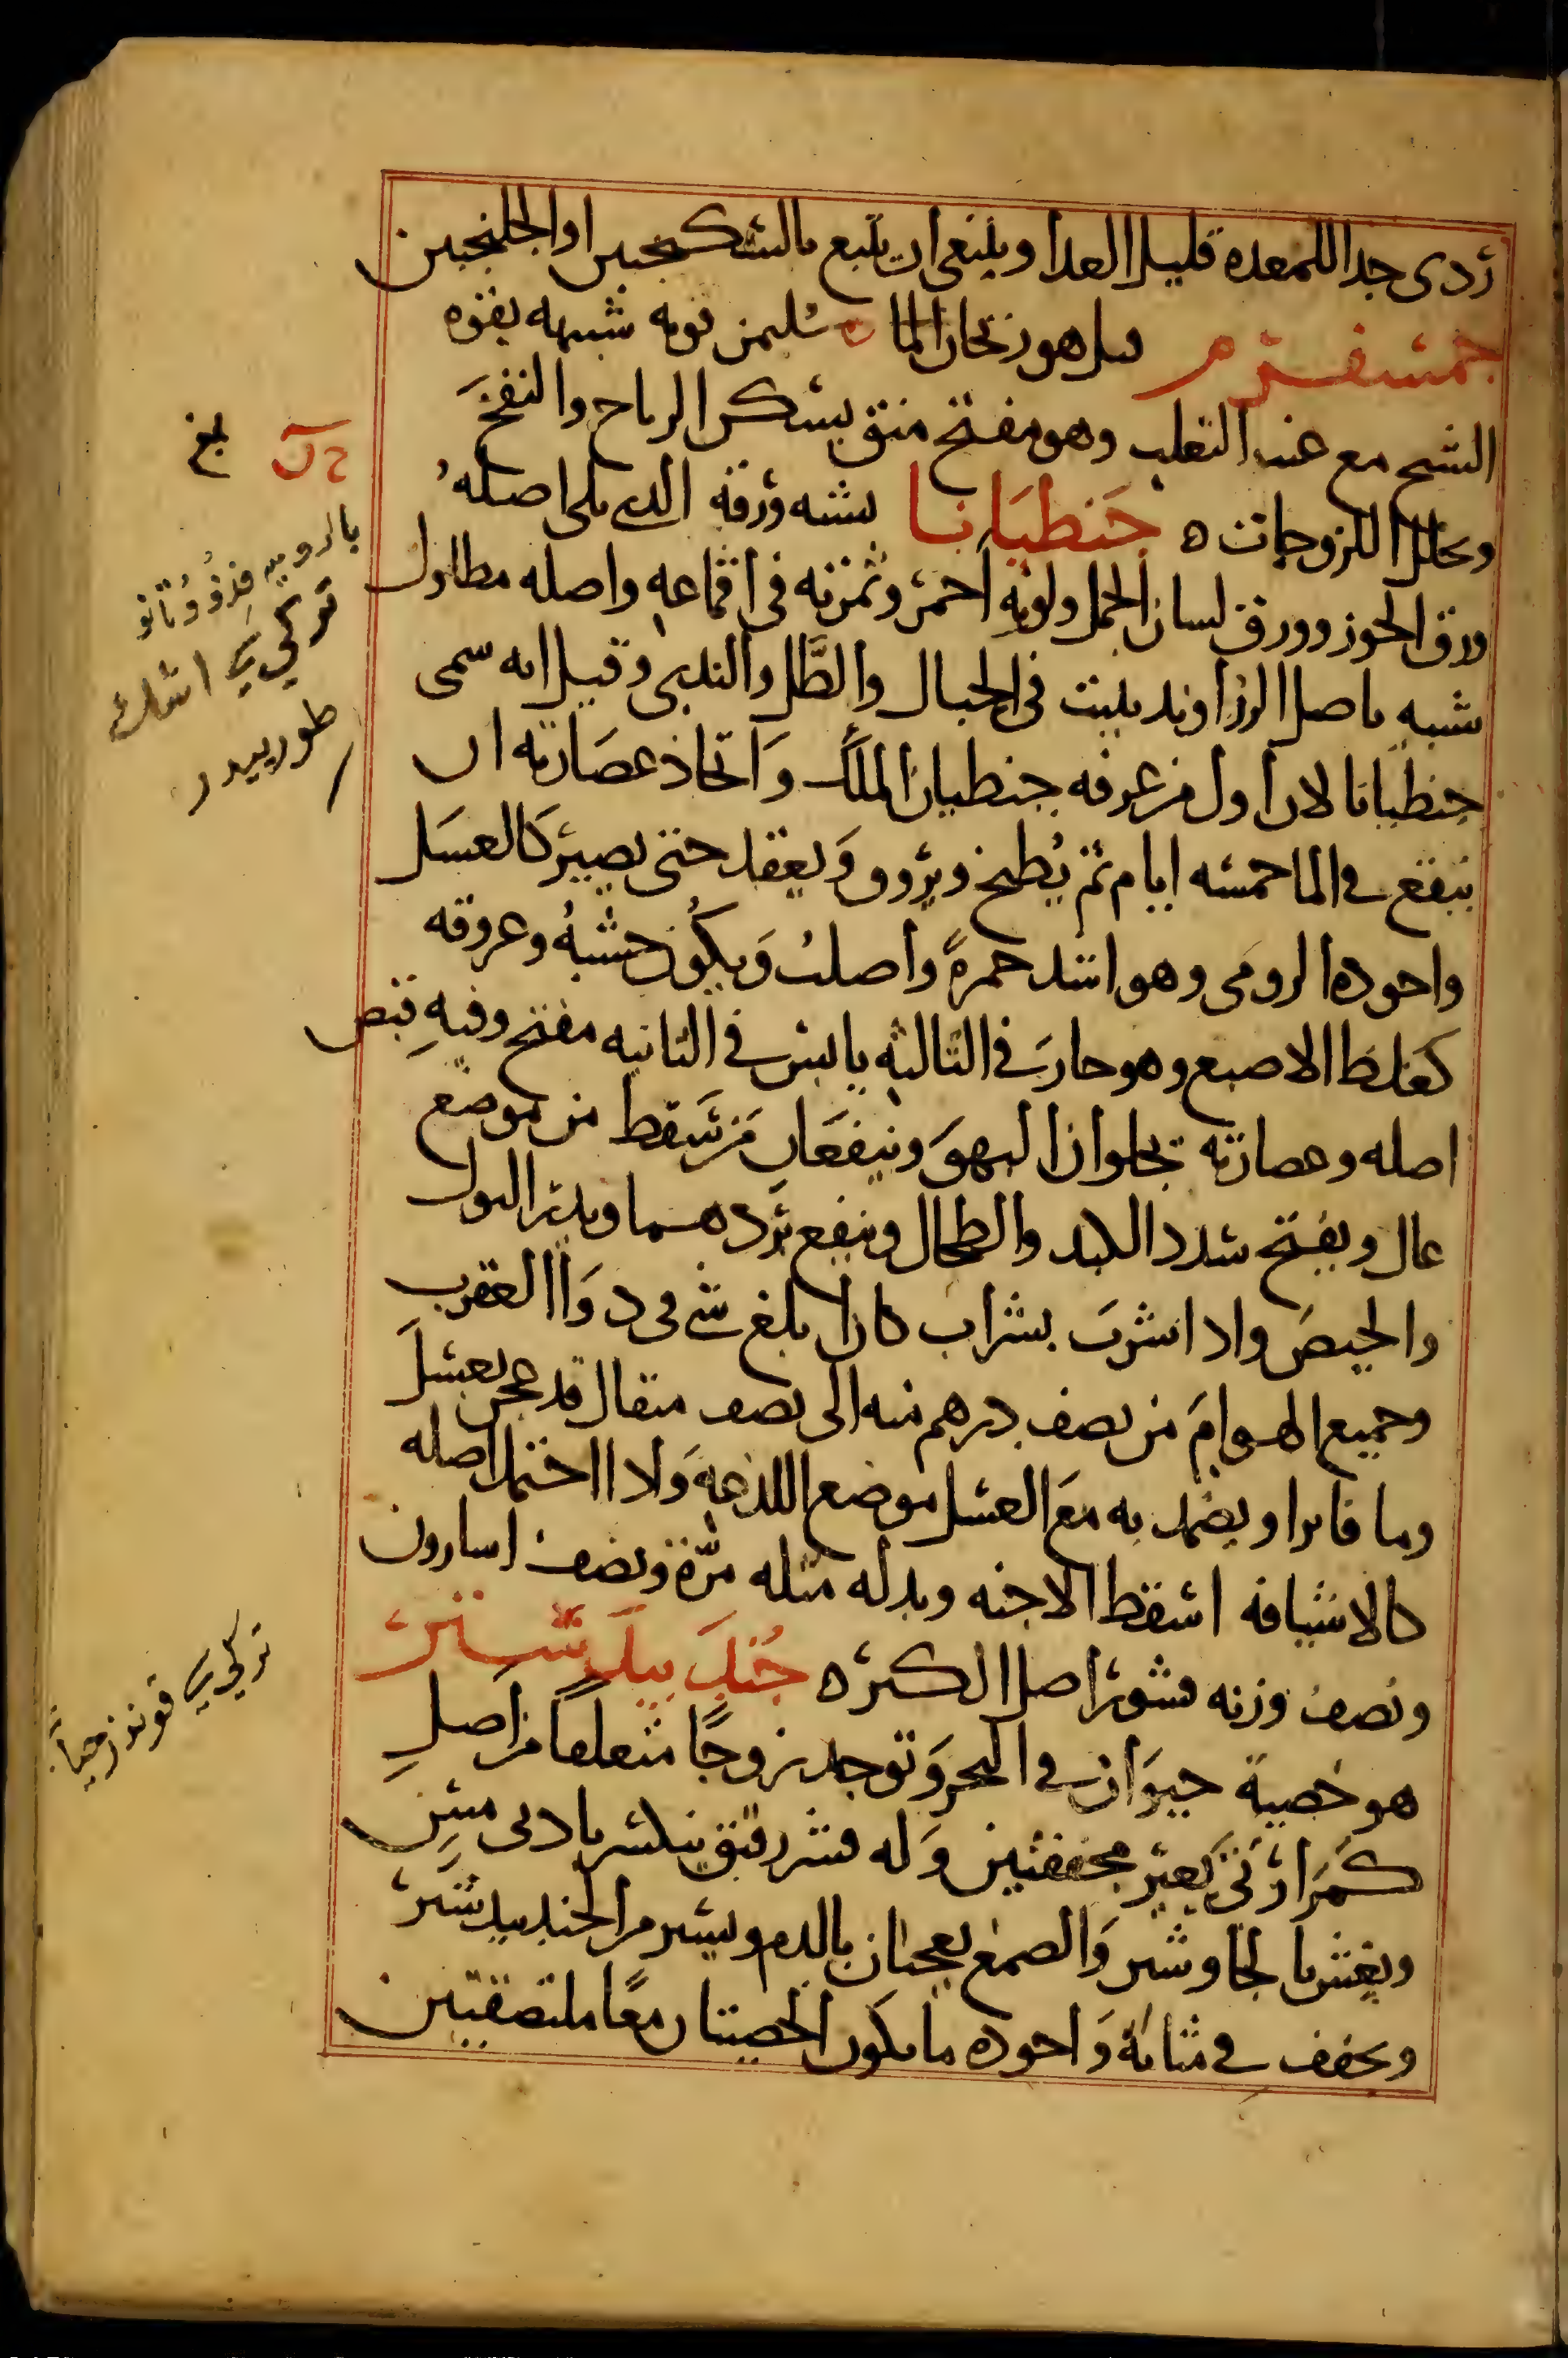 ردى جدا للمعده قليل الغدا وينبغى ان يتبع بالسكنجبين او الجلنجبين
جمسفرم قيل هو ريحان الما ه سليمن قوته شبيهه بقوه
الشيح مع عنب الثعلب وهو مفتح منق يسكن الرياح والنفخ
ويحلل اللزوجات ه جنطيانا يشبه ورقه الذى يلى اصله
ورق الجوز وورق لسان الحمل ولونه احمر وثمرته فى اقماعه واصله مطاول
شبيه باصل الزراوند ينبت فى الجبال والظل والندى وقيل انه سمى
جنطيانا لان اول من عرفه جنطيان الملك واتخاذ عصارته ان
ينقع فى الما خمسه ايام ثم يطبخ ويروق ويعقد حتى يصير كالعسل
واجوده الرومى وهو اشد حمرة واصلب ويكون خشبه وعروقه
كغلظ الاصبع وهو حار فى الثالثه يابس فى الثانيه مفتح وفيه قبض
اصله وعصارته يجلوان البهق وينفعان من سقط من موضع
عال ويفتح سدد الكبد والطحال وينفع بردهما ويدر البول
والحيض واذا شرب بشراب كان ابلغ شى فى دواا العقرب
وجميع الهوام من نصف درهم منه الى نصف مثقال قد عجن بعسل
وما فاترا ويضمد به مع العسل موضع اللدغه ولاا احتمل اصله
كالاشيافه اسقط الاجنه وبدله مثله مرة ونصف اسارون
ونصف وزنه قشور اصل الكبر ه جندبيدستر
هو خصية حيوان فى البحر وتوجد زوجا متعلقا من اصل
وله قشر رقيق ينكسر بادنى مس
ويغش بالجاوشير والصمغ يعجنان بالدم ويسير من الجندبيدستر
ويجفف فى مثانة واجوده ما يكون الخصيتان معا ملتصقتين
بلغ
بالروميه
تركى
طورييدر
تركى قوندز